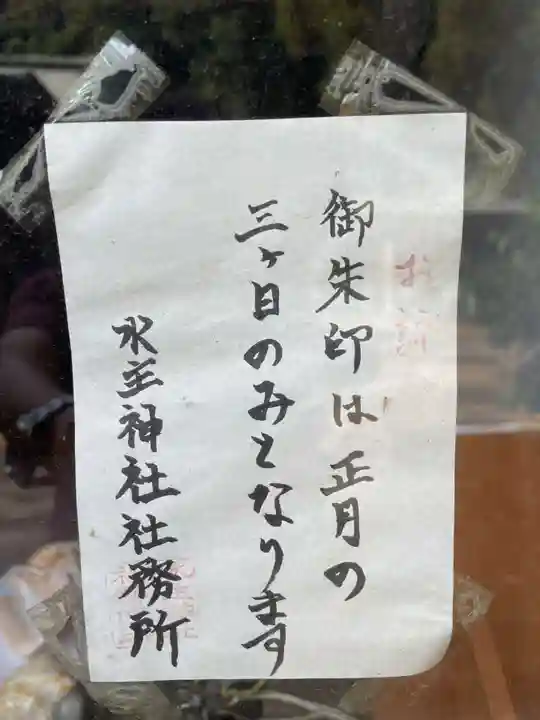 御朱印は正月の
三ヶ日のみとなります
水主神社社務所